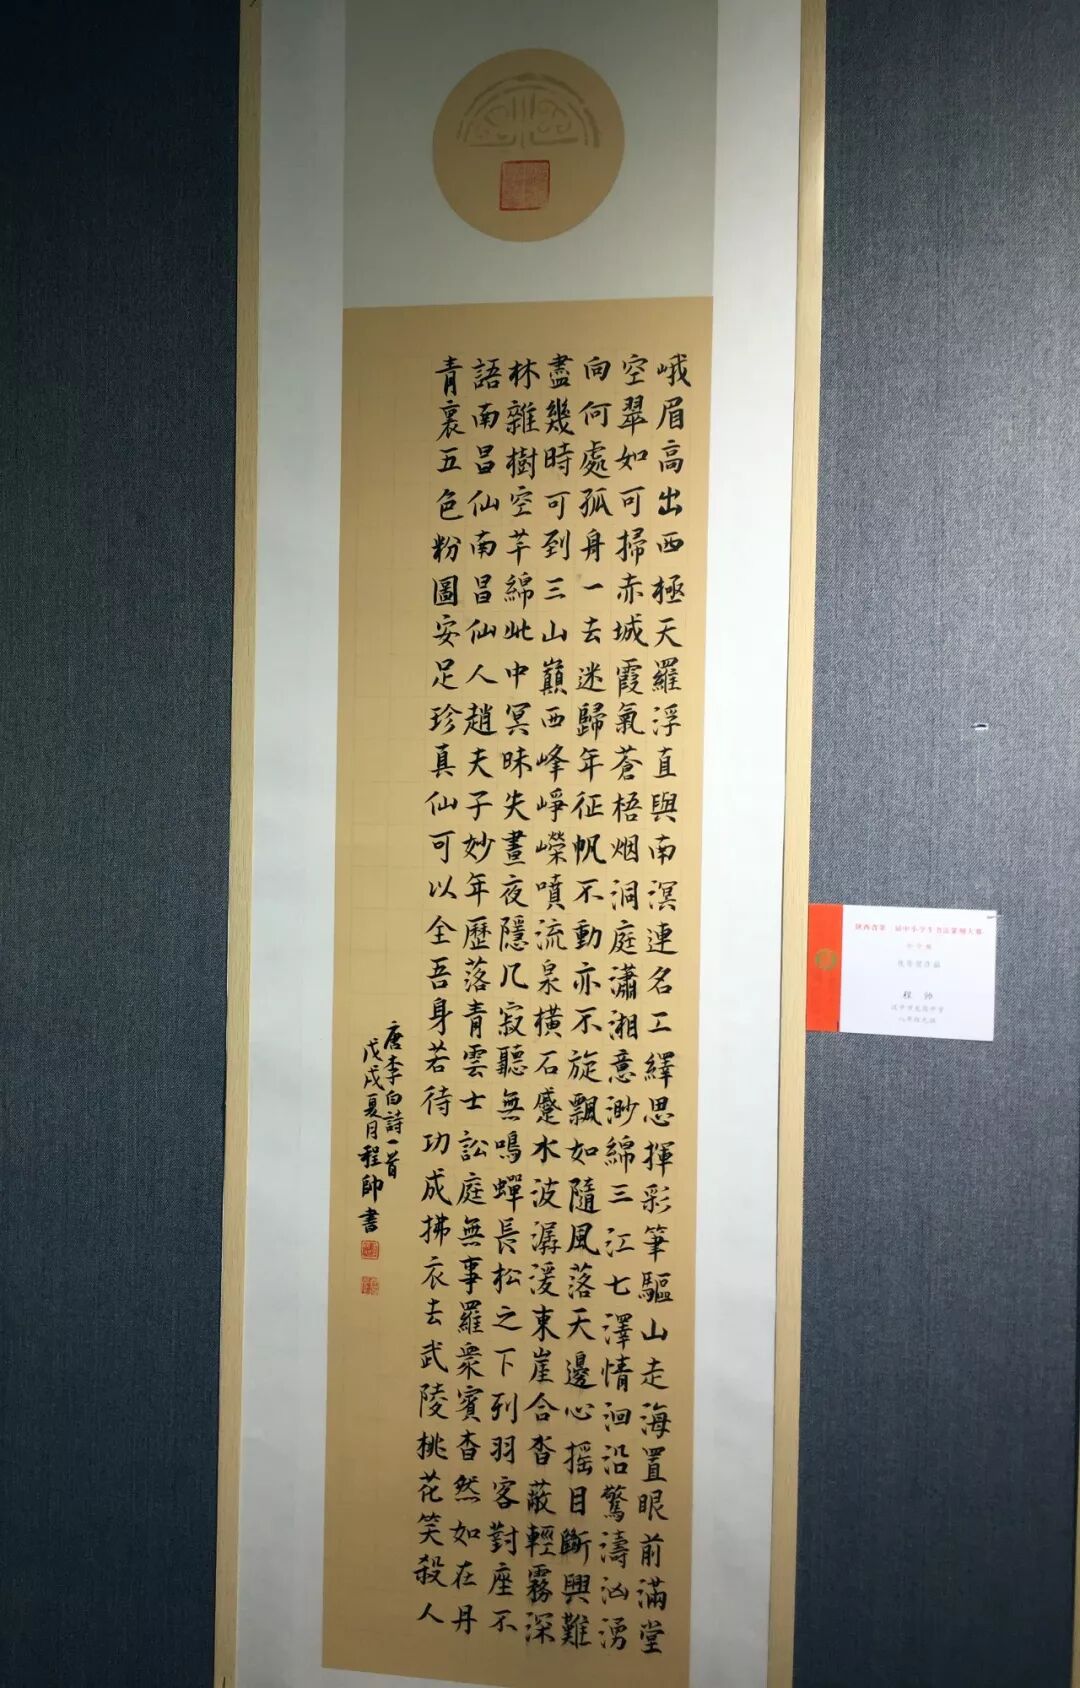 峨眉高出西極天羅浮直與南溟連名工繹思揮彩筆驅山走海置眼前滿堂
空翠如可掃赤城霞氣蒼梧烟洞庭瀟湘意渺綿三江七澤情洄沿驚濤汹湧
向何處孤身一去迷歸年征帆不動亦不旋飄如隨風落天邊心摇目斷興難
盡幾時可到三山巔西峰崢嶸噴流泉橫石蹙水波潺湲東崖合沓蔽輕霧深
林雜樹空芊綿此中冥昧失晝夜隱几寂聽無鳴蟬長松之下列羽客對座不
語南昌仙南昌仙人趙夫子妙年歷落青雲士訟庭無事羅衆賓杳然如在丹
青裏五色粉圖安足珍真仙可以全吾身若待功成拂衣去武陵桃花笑殺人
唐李白詩一首
戊戌夏月程帥書
程帥